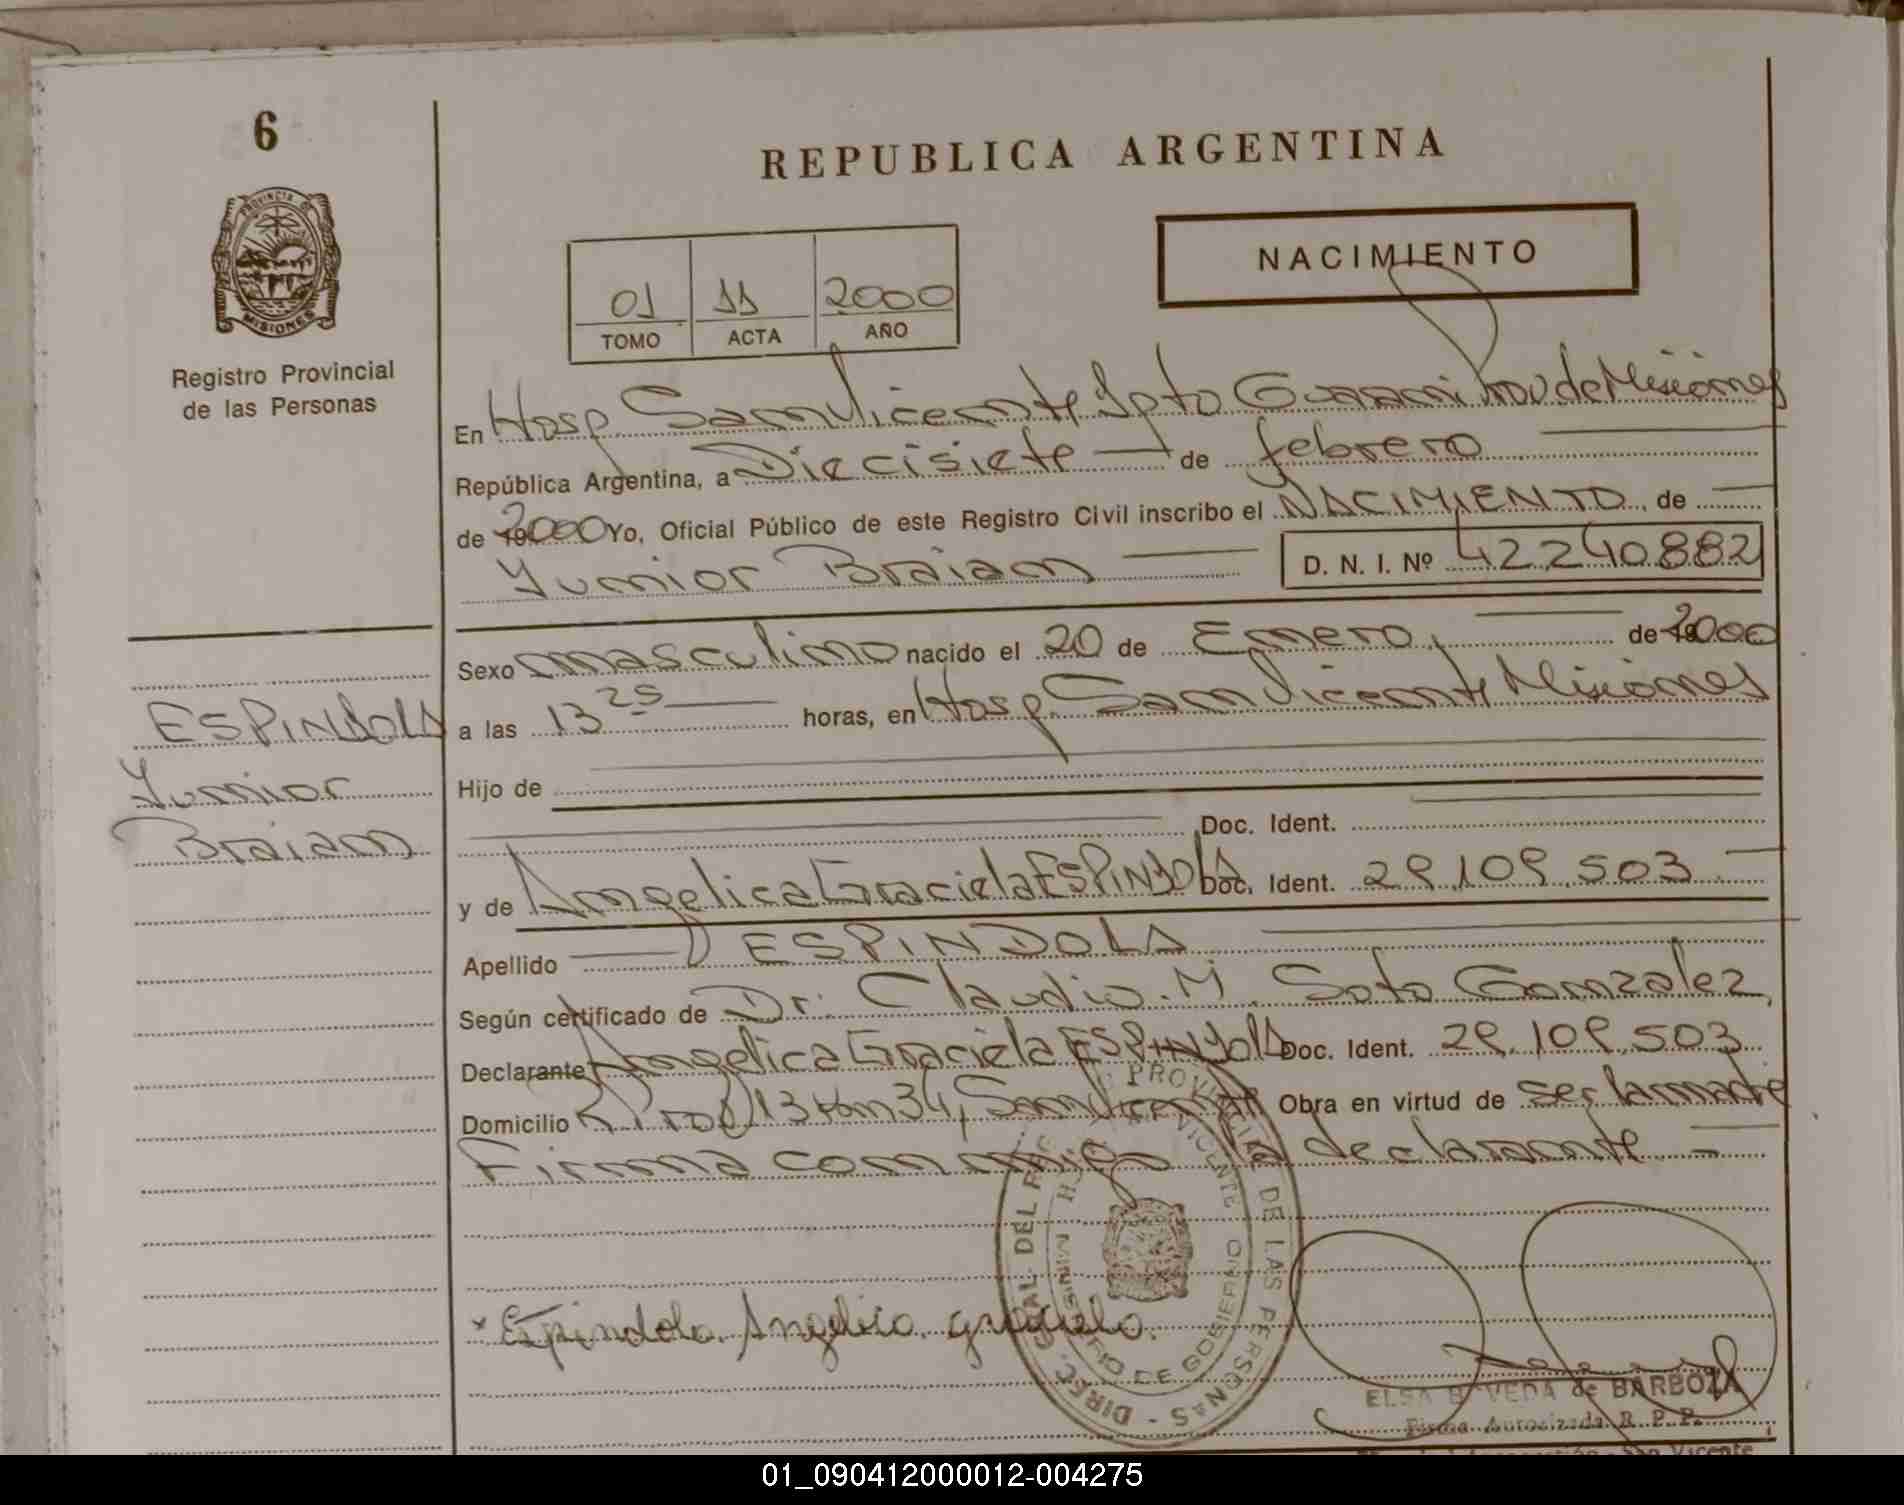 6
REPUBLICA ARGENTINA
PROVINCIA DE
MISIONES
NACIMIENTO
01 11 2000
TOMO ACTA AÑO
Registro Provincial
de las Personas
En Hosp. San Vicente Dpto Guarani Prov de Misiones
República Argentina, a Diecisiete de febrero
de 2000 Yo, Oficial Público de este Registro Civil inscribo el NACIMIENTO, de
Yunior Braian D. N. I. Nº 42240882
Sexo masculino nacido el 20 de Enero, de 2000
a las 13 25 horas, en Hosp. San Vicente Misiones
ESPINDOLA
Yunior
Braian
Hijo de
Doc. Ident.
y de Angelica Graciela ESPINDOLA Doc. Ident. 29.109.503
Apellido ESPINDOLA
Según certificado de Dr. Claudio. M. Soto Gonzalez,
Declarante Angelica Graciela ESPINDOLA Doc. Ident. 29.109.503
Domicilio R. Prov 13 km 34, San Vicente Obra en virtud de ser la madre
Firma conmigo la declarante
DIREC. GRAL. DEL REG. PROVINCIAL DE LAS PERSONAS -
MINISTERIO DE GOBIERNO
VICENTE
x Espindola Angelica graciela.
ELSA BOVEDA de BARBOZA
Firma Autorizada R. P. P.
San Vicente
01_090412000012-004275